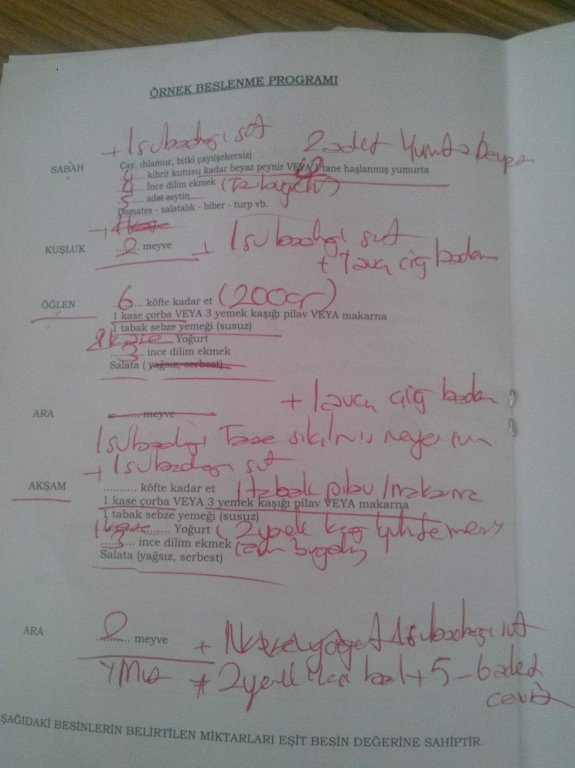 ÖRNEK BESLENME PROGRAMI
+ 1 su bardağı süt
2 adet yumurta beyazı
SABAH
Çay, ıhlamur, bitki çayı(şekersiz)
kibrit kutusu kadar beyaz peynir VEYA tane haşlanmış yumurta
ince dilim ekmek
5 adet zeytin
Domates - salatalık - biber - turp vb.
KUŞLUK
2 meyve + 1 su bardağı süt
+ 1 avuç çiğ badem
ÖĞLEN
6 köfte kadar et (200gr)
1 kase çorba VEYA 3 yemek kaşığı pilav VEYA makarna
1 tabak sebze yemeği (susuz)
kase Yoğurt
3 ince dilim ekmek
Salata ( yağsız, serbest)
ARA
meyve + 1 avuç çiğ badem
1 su bardağı taze sıkılmış meyve suyu
+ 1 su bardağı süt
AKŞAM
köfte kadar et 1 tabak pilav / makarna
1 kase çorba VEYA 3 yemek kaşığı pilav VEYA makarna
1 tabak sebze yemeği (susuz)
1 kase Yoğurt
3 ince dilim ekmek
Salata (yağsız, serbest)
ARA
2 meyve + 1 su bardağı süt
2 yemek kaşığı bal + 5-6 adet
ceviz
ŞAĞIDAKİ BESİNLERİN BELİRTİLEN MİKTARLARI EŞİT BESİN DEĞERİNE SAHİPTİR.